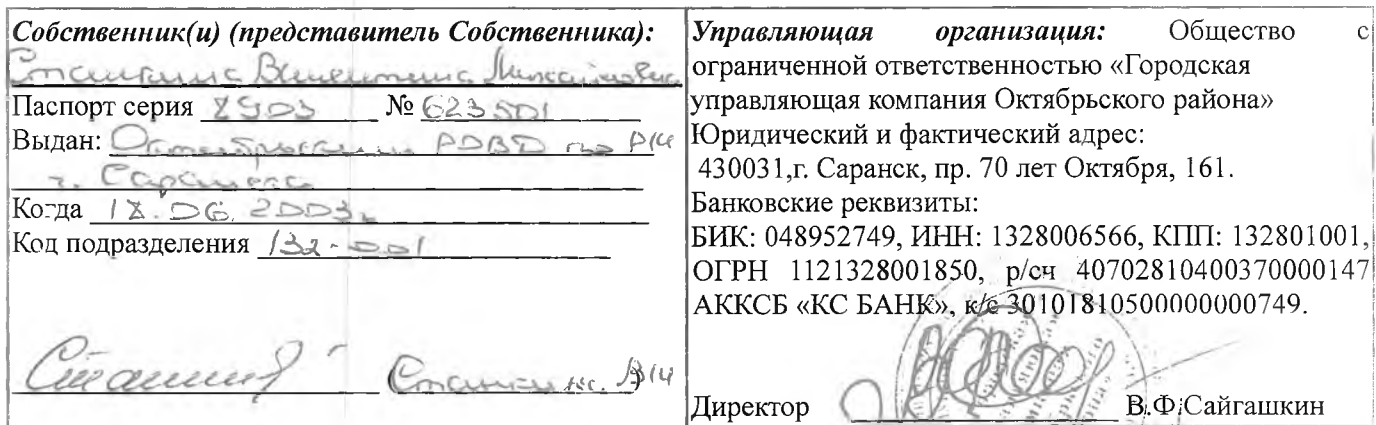 Собственник(и) (представитель Собственника):
Станкина Валентина Михайловна
Паспорт серия 8903 № 623501
Выдан: Октябрьским РОВД по РМ
г. Саранска
Когда 18.06.2003г.
Код подразделения 132-001
Станкина В.М
Управляющая организация: Общество с
ограниченной ответственностью «Городская
управляющая компания Октябрьского района»
Юридический и фактический адрес:
430031,г. Саранск, пр. 70 лет Октября, 161.
Банковские реквизиты:
БИК: 048952749, ИНН: 1328006566, КПП: 132801001,
ОГРН 1121328001850, р/сч 40702810400370000147
АККСБ «КС БАНК», к/с 30101810500000000749.
Директор В.Ф.Сайгашкин